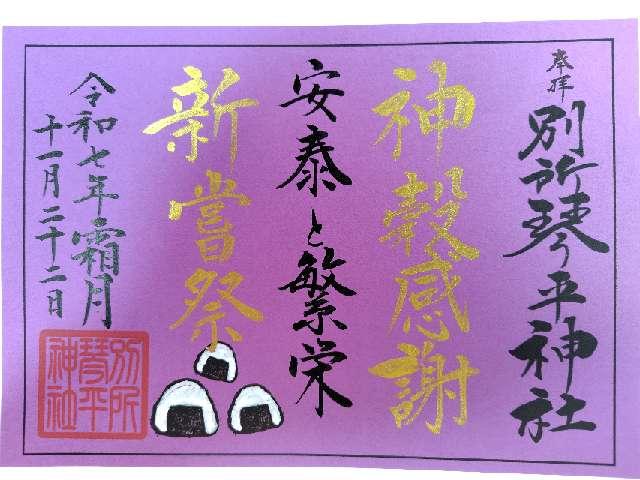 奉拝
別所琴平神社
神穀感謝
安泰と繁栄
新嘗祭
令和七年霜月
十一月二十二日
別所
琴平
神社